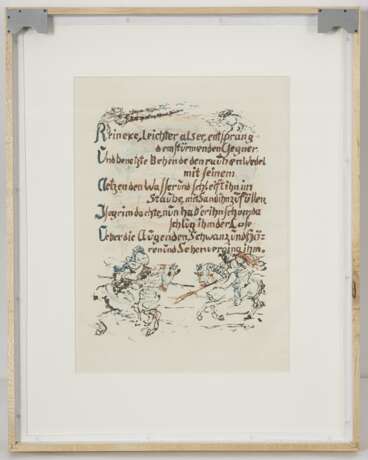 Reineke, leichter als er, entsprang
dem stürmenden Gegner
Und benetzte Behende den rauhen Wedel
mit seinem
Aetzenden Wasser und schleift ihn im
Staube, mit Sand ihn zu füllen
Isegrim dachte, nun hab er ihn schon da
schlug ihm der Lose
Ueber die Augen den Schwanz und Hö=
ren und Sehen verging ihm.